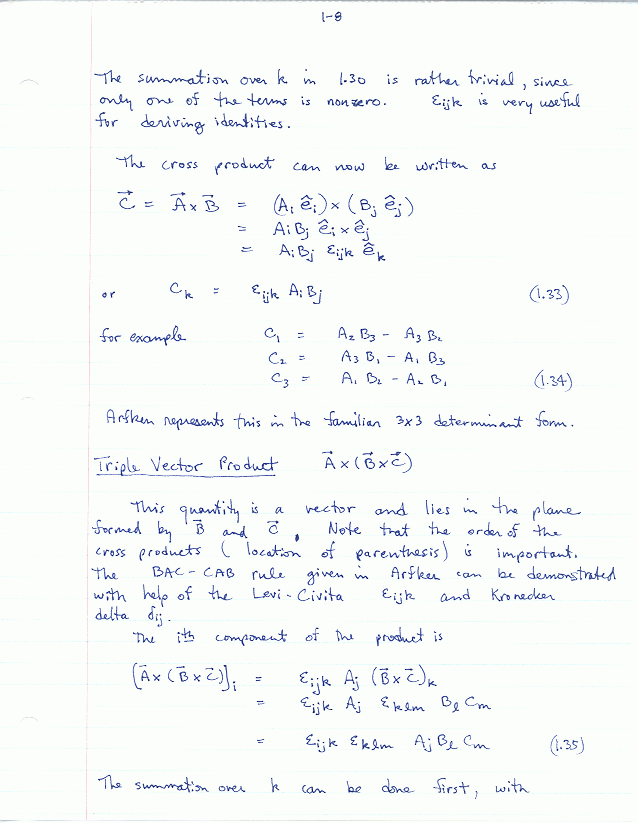 1-8
The summation over k in 1.30 is rather trivial, since
only one of the terms is nonzero. εijk is very useful
for deriving identities.
The cross product can now be written as
C⃗ = A⃗ × B⃗ = (Ai êi) × (Bj êj)
= AiBj êi × êj
= AiBj εijk êk
or Ck = εijk AiBj (1.33)
for example C1 = A2 B3 - A3 B2
C2 = A3 B1 - A1 B3
C3 = A1 B2 - A2 B1 (1.34)
Arfken represents this in the familiar 3x3 determinant form.
Triple Vector Product A⃗ × (B⃗ × C⃗)
This quantity is a vector and lies in the plane
formed by B⃗ and C⃗. Note that the order of the
cross products (location of parenthesis) is important.
The BAC-CAB rule given in Arfken can be demonstrated
with help of the Levi-Civita εijk and Kronecker
delta δij.
The ith component of the product is
[A⃗ × (B⃗ × C⃗)]i = εijk Aj (B⃗ × C⃗)k
= εijk Aj εklm Bl Cm
= εijk εklm Aj Bl Cm (1.35)
The summation over k can be done first, with